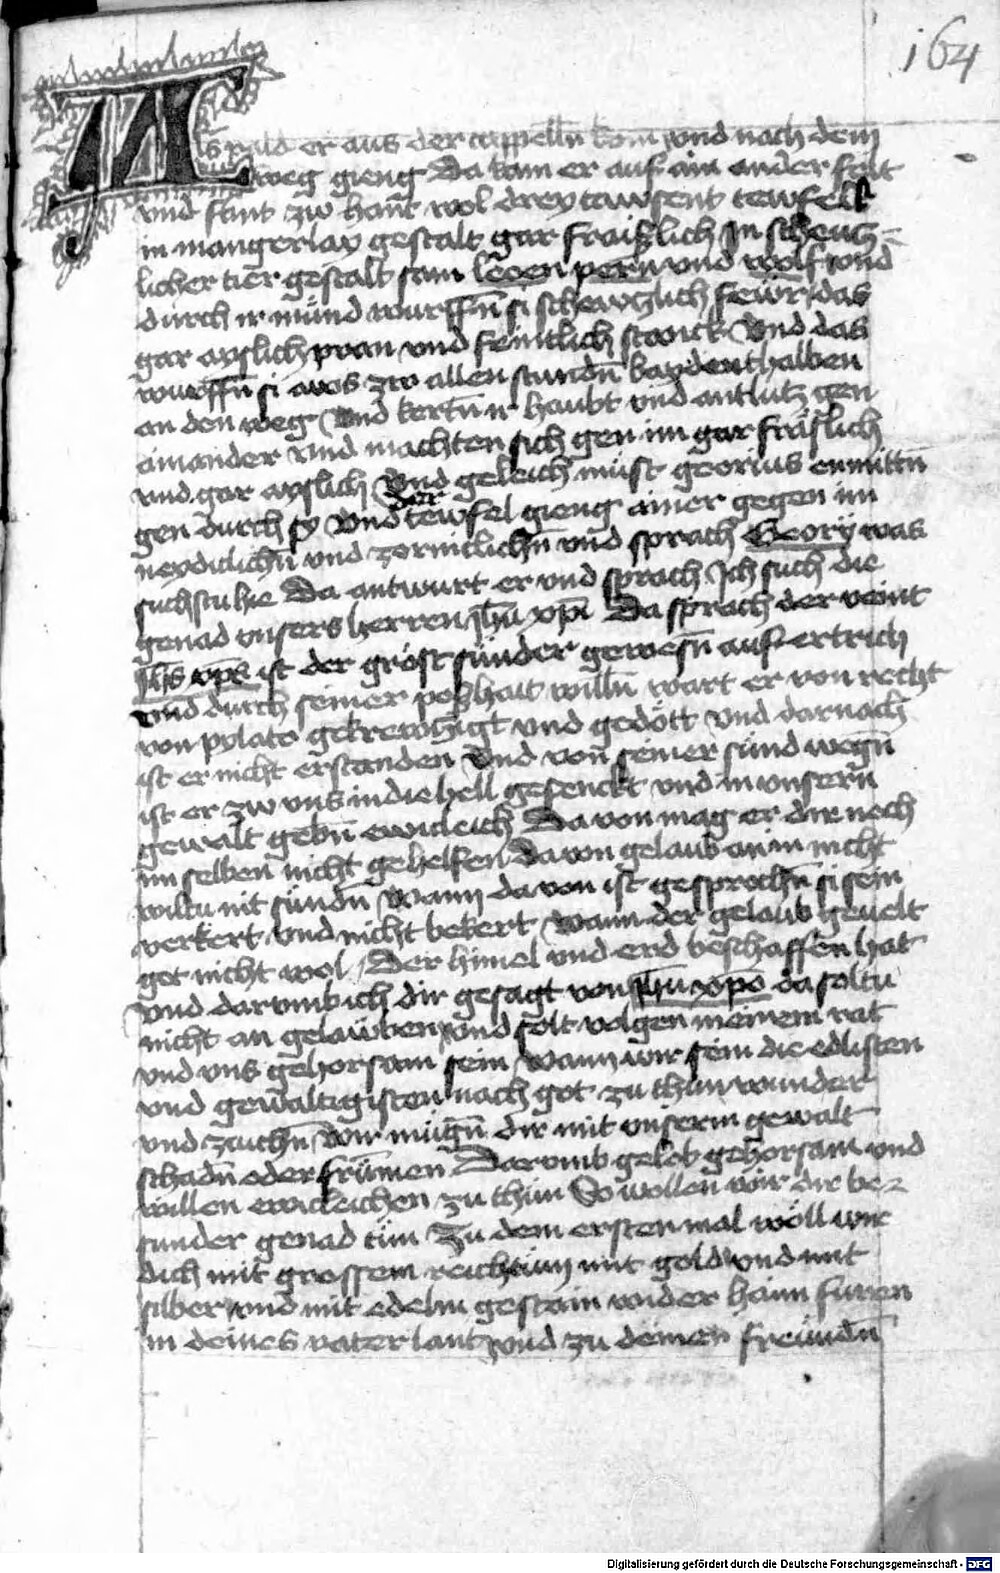 164
Als pald er aus der cappelln̄ kom̄ vnd nach dem
weg gieng Da kam er auf ain ander seit
vnd fant zw hant wol drey tawsent tewfell
in mangerlay gestalt gar fraißlich In scheutz-
licher tier gestalt sam leoen pern vnd wolf vnd
durch ir mund wurffn̄ si schewtzlich fewr das
gar ayslich pran vnd feintlich stanck Vnd das
wurffn̄ si aws zw allen stundn̄ baydenthalben
an den weg Vnd kertn̄ ir haubt vnd antlutz gen
ainander vnd machten sich gen im gar fräslich
vnd gar ayslich Vnd geleich must georius enmittn̄
gen durch sy Vnd der tewfel gieng ainer gegen im
neyditlichn̄ vnd zornitlichn̄ vnd sprach Geory was
suchstu hie Da antwurt er vnd sprach Ich such die
genad vnsers herren Jhū xpī Da sprach der veint
Jhs xps ist der gröst sünder gewesn̄ auf ertrich
vnd durch seiner poßhait willn̄ wart er von recht
von pylato gekrewtzigt vnd gedött vnd darnach
ist er nicht erstanden Vnd von seiner sünd wegn̄
ist er zw vns in die hell gesenckt vnd in vnsern̄
gewalt gebn̄ ewicleich Da von mag er dir noch
im selben nicht gehelfen Da von gelaub an in nicht
wiltu nit sündn̄ Wann da von ist gesprochn̄ si sein
verkert vnd nicht bekert Wann der gelaub geuelt
got nicht wol Der himel vnd erd beschaffen hat
Vnd darumb ich dir gesagt von Jhū xpō da soltu
nicht an gelaüben vnd solt volgen meinem rat
vnd vns gehorsam sein Wann wir sein die edlisten
vnd gewaltigisten nach got zu thun wunder
vnd zaichn̄ Wir mügn̄ dir mit vnserm gewalt
schadn̄ oder frümen Darumb gelob gehorsam vnd
willen ewicleichen zu thün So wollen wir dir be-
sunder genad tün Zu dem ersten mal wöll wir
dich mit grossem reichtum mit gold vnd mit
silber vnd mit edelm gestain wider haim furen
in deines vater lant vnd zu deinen freündn̄
Digitalisierung gefördert durch die Deutsche Forschungsgemeinschaft - DFG